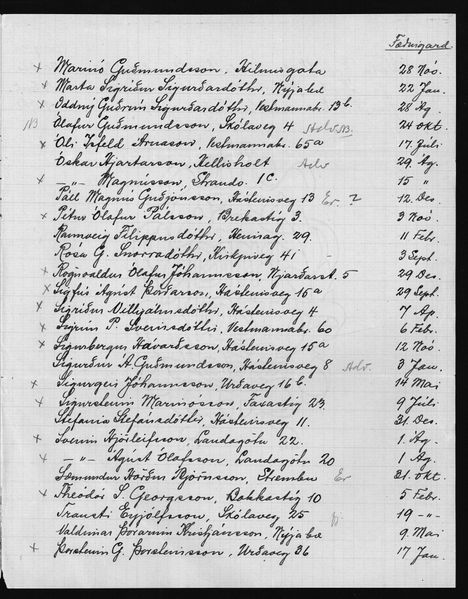 Fæðingard.
x Marinó Guðmundsson, Hilmisgata 28 Nóv.
x Marta Sigríður Sigurðardóttir, Nýjabæ 22 Jan.
x Oddný Guðrún Sigurðardóttir, Vestmannabr. 13b. 28 Ág.
NB Ólafur Guðmundsson, Skólaveg 4 Adv. NB. 24 Okt.
x Óli Ísfeld Árnason, Vestmannabr. 65a 17 Júlí
Óskar Kjartarson, Hellisholt Adv 29 Ág.
x —"— Magnússon, Strandv. 1C. 15 "
Páll Magnús Guðjónsson, Hásteinsveg 13 Er. ? 12 Des.
x Pétur Ólafur Pálsson, Brekastíg 3. 3 Nóv.
Rannveig Filippusdóttir, Heimag. 29. 11 Febr.
Rósa G. Snorradóttir, Kirkjuveg 41 - 3 Sept.
x Rögnvaldur Ólafur Jóhannsson, Njarðarst. 5 29 Des.
x Sigfús Ágúst Þórðarson, Hásteinsveg 15a 29 Sept.
x Sigríður Vilhjálmsdóttir, Hásteinsveg 4 7 Ap.
x Sigrún P. Sveinsdóttir, Vestmannabr. 60 6 Febr.
x Sigurbergur Hávarðsson, Hásteinsveg 15a 12 Nóv.
Sigurður Á. Guðmundsson, Hásteinsveg 8 Adv. 3 Jan.
x Sigurgeir Jóhannsson, Urðaveg 16b. 14 Mai
x Sigursteinn Marinósson, Faxastíg 23. 9 Júlí
Stefanía Stefánsdóttir, Hásteinsveg 11. 31 Des.
x Sveinn Hjörleifsson, Landagötu 22. 1. Ág.
x —"— Ágúst Ólafsson, Landagötu 20 1 Ág.
Sæmundur Hörður Björnsson, Strembu Er 31. Okt.
x Theodór S. Georgsson, Bakkastíg 10 5 Febr.
Trausti Eyjólfsson, Skólaveg 25 19 -"-
Valdimar Þórarinn Kristjánsson, Nýjabæ 9. Mai
x Þorsteinn G. Þorsteinsson, Urðaveg 36 17 Jan.